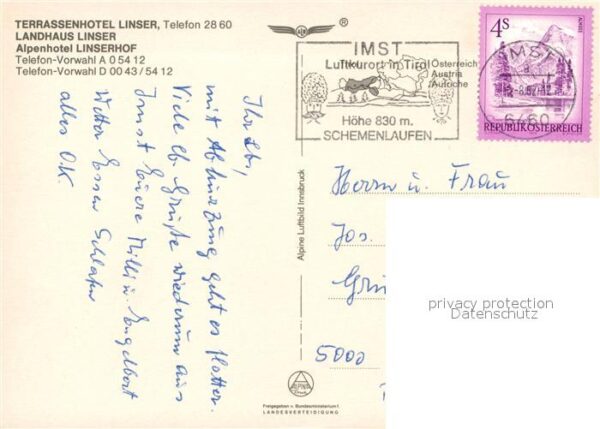 TERRASSENHOTEL LINSER, Telefon 28 60
LANDHAUS LINSER
Alpenhotel LINSERHOF
Telefon-Vorwahl A 0 54 12
Telefon-Vorwahl D 00 43 / 54 12
®
IMST
Luftkurort in Tirol
Österreich
Austria
Autriche
Höhe 830 m.
SCHEMENLAUFEN
IMST
6460
4S
REPUBLIK ÖSTERREICH
Ihr Lb.,
mit Abkürzung geht es flotter.
Viele lb. Grüße wiederum aus
Imst Euere Milli u. Engelbert
Wetter Essen Schlafen
alles O.K.
Alpine Luftbild Innsbruck
Herrn u. Frau
Jos.
5000
privacy protection
Datenschutz
Freigegeben v. Bundesministerium f.
LANDESVERTEIDIGUNG